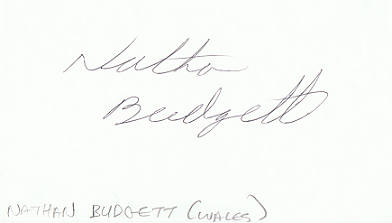 Nathan
Budgett
NATHAN BUDGETT (WALES)